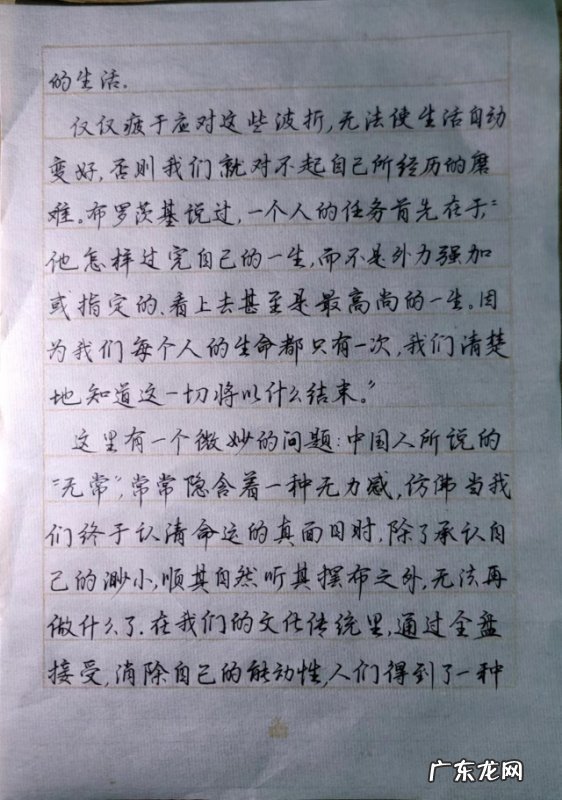 的生活.
仅仅疲于应对这些波折,无法使生活自动
变好,否则我们就对不起自己所经历的磨
难。布罗茨基说过,一个人的任务首先在于,“
他怎样过完自己的一生,而不是外力强加
或指定的、看上去甚至是最高尚的一生。因
为我们每个人的生命都只有一次,我们清楚
地知道这一切将以什么结束。”
这里有一个微妙的问题:中国人所说的
“无常”,常常隐含着一种无力感,仿佛当我
们终于认清命运的真面目时,除了承认自
己的渺小,顺其自然听其摆布之外,无法再
做什么了.在我们的文化传统里,通过全盘
接受,消除自己的能动性,人们得到了一种
广东龙网